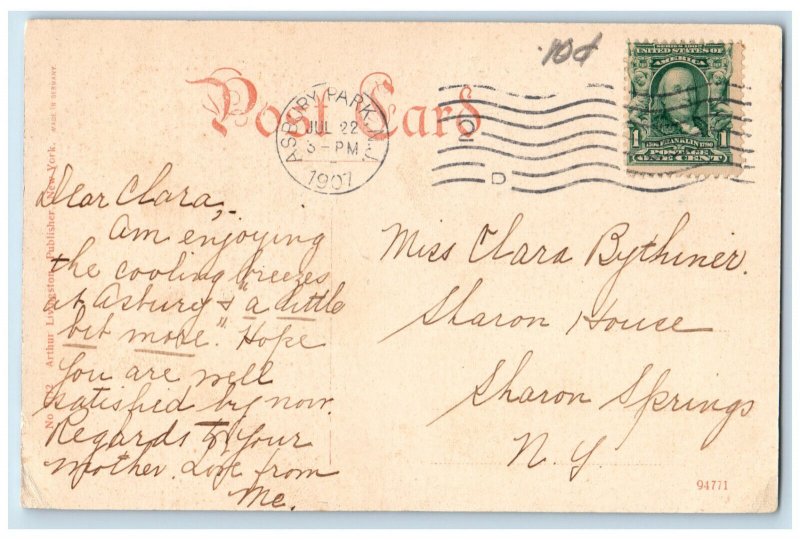 10¢
Post Card
ASBURY PARK, N.J.
JUL 22
3-PM
1907
D
SERIES 1902
UNITED STATES OF
AMERICA
1 1
FRANKLIN
POSTAGE
ONE CENT
Dear Clara,-
Am enjoying
the cooling breezes
at Asbury & "a little
bit more." Hope
you are well
satisfied by now.
Regards to your
mother. Love from
Me.
Miss Clara Bythiner.
Sharon House
Sharon Springs
N. Y.
Arthur Livingston, Publisher, New York. MADE IN GERMANY.
94771